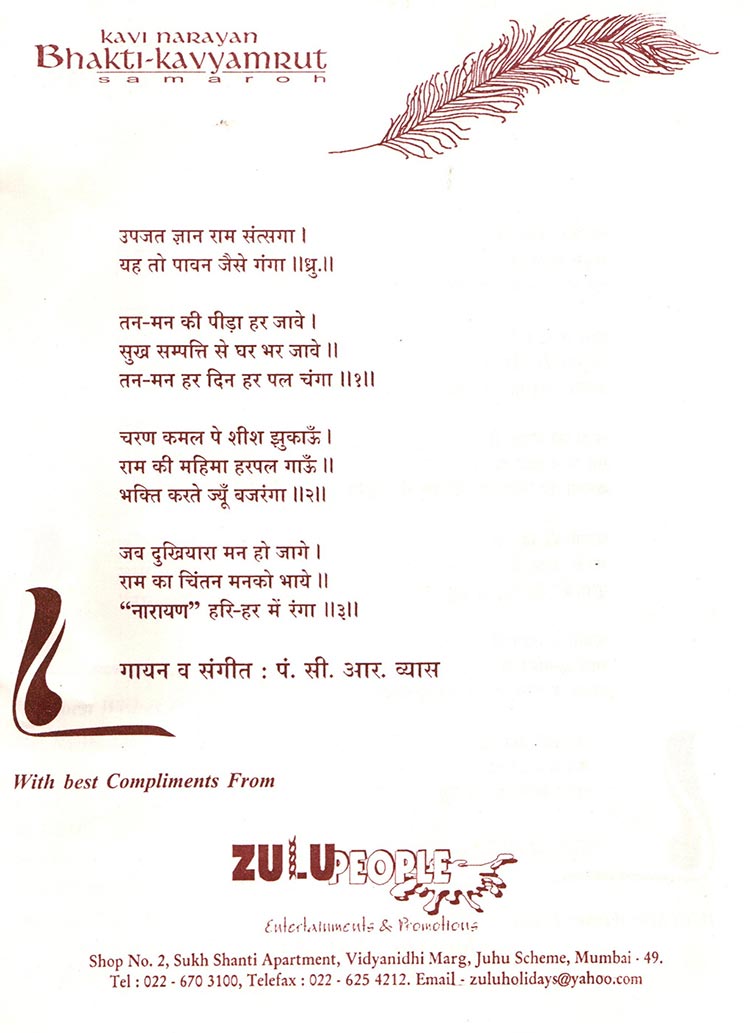 KAVI NARAYAN
BHAKTI-KAVYAMRUT
samaroh
उपजत ज्ञान राम संत्सगा ।
यह तो पावन जैसे गंगा ॥ध्रु.॥
तन-मन की पीड़ा हर जावे ।
सुख सम्पत्ति से घर भर जावे ॥
तन-मन हर दिन हर पल चंगा ॥१॥
चरण कमल पे शीश झुकाऊँ ।
राम की महिमा हरपल गाऊँ ॥
भक्ति करते ज्यूँ बजरंगा ॥२॥
जब दुखियारा मन हो जागे ।
राम का चिंतन मनको भाये ॥
“नारायण” हरि-हर में रंगा ॥३॥
गायन व संगीत : पं. सी. आर. व्यास
With best Compliments From
ZULU PEOPLE
Entertainments & Promotions
Shop No. 2, Sukh Shanti Apartment, Vidyanidhi Marg, Juhu Scheme, Mumbai - 49.
Tel : 022 - 670 3100, Telefax : 022 - 625 4212. Email - zuluholidays@yahoo.com